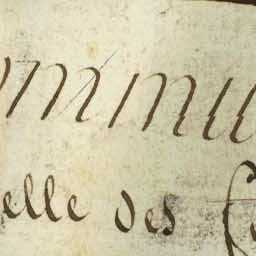 ommu
elle des C